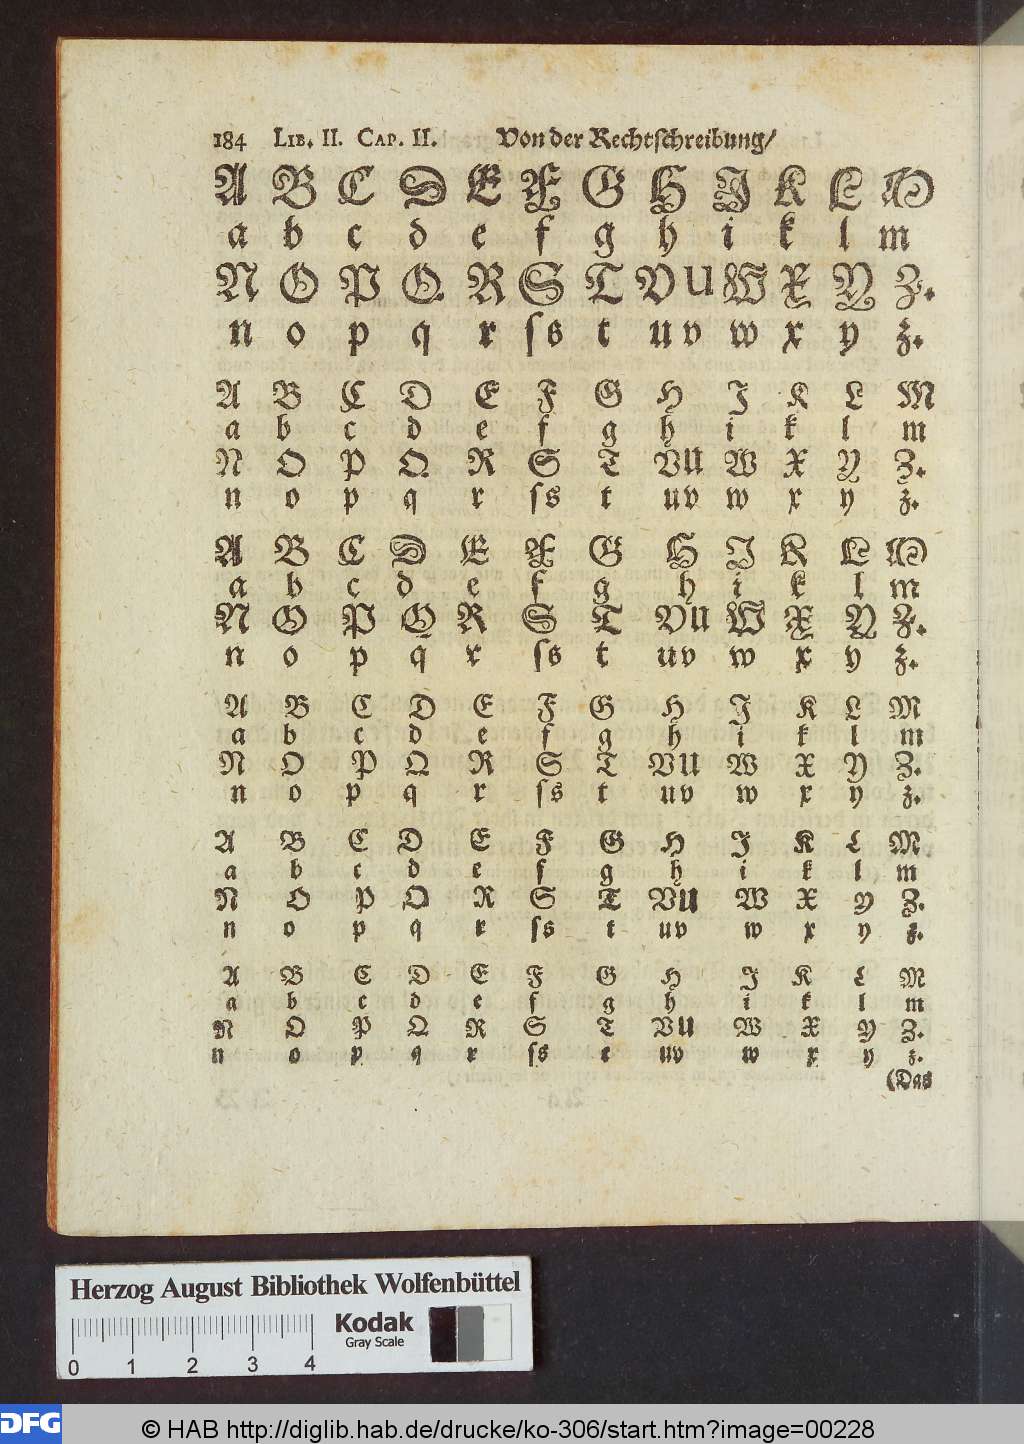 184 LIB. II. CAP. II. Von der Rechtschreibung/
A B C D E F G H I K L M
a b c d e f g h i k l m
N O P Q R S T V U W X Y Z.
n o p q r ſ s t u v w x y z.
A B C D E F G H I K L M
a b c d e f g h i k l m
N O P Q R S T V U W X Y Z.
n o p q r ſ s t u v w x y z.
A B C D E F G H I K L M
a b c d e f g h i k l m
N O P Q R S T V U W X Y Z.
n o p q r ſ s t u v w x y z.
A B C D E F G H I K L M
a b c d e f g h i k l m
N O P Q R S T V U W X Y Z.
n o p q r ſ s t u v w x y z.
A B C D E F G H I K L M
a b c d e f g h i k l m
N O P Q R S T V U W X Y Z.
n o p q r ſ s t u v w x y z.
A B C D E F G H I K L M
a b c d e f g h i k l m
N O P Q R S T V U W X Y Z.
n o p q r ſ s t u v w x y z.
(Das
Herzog August Bibliothek Wolfenbüttel
Kodak
Gray Scale
0 1 2 3 4
DFG
© HAB http://diglib.hab.de/drucke/ko-306/start.htm?image=00228